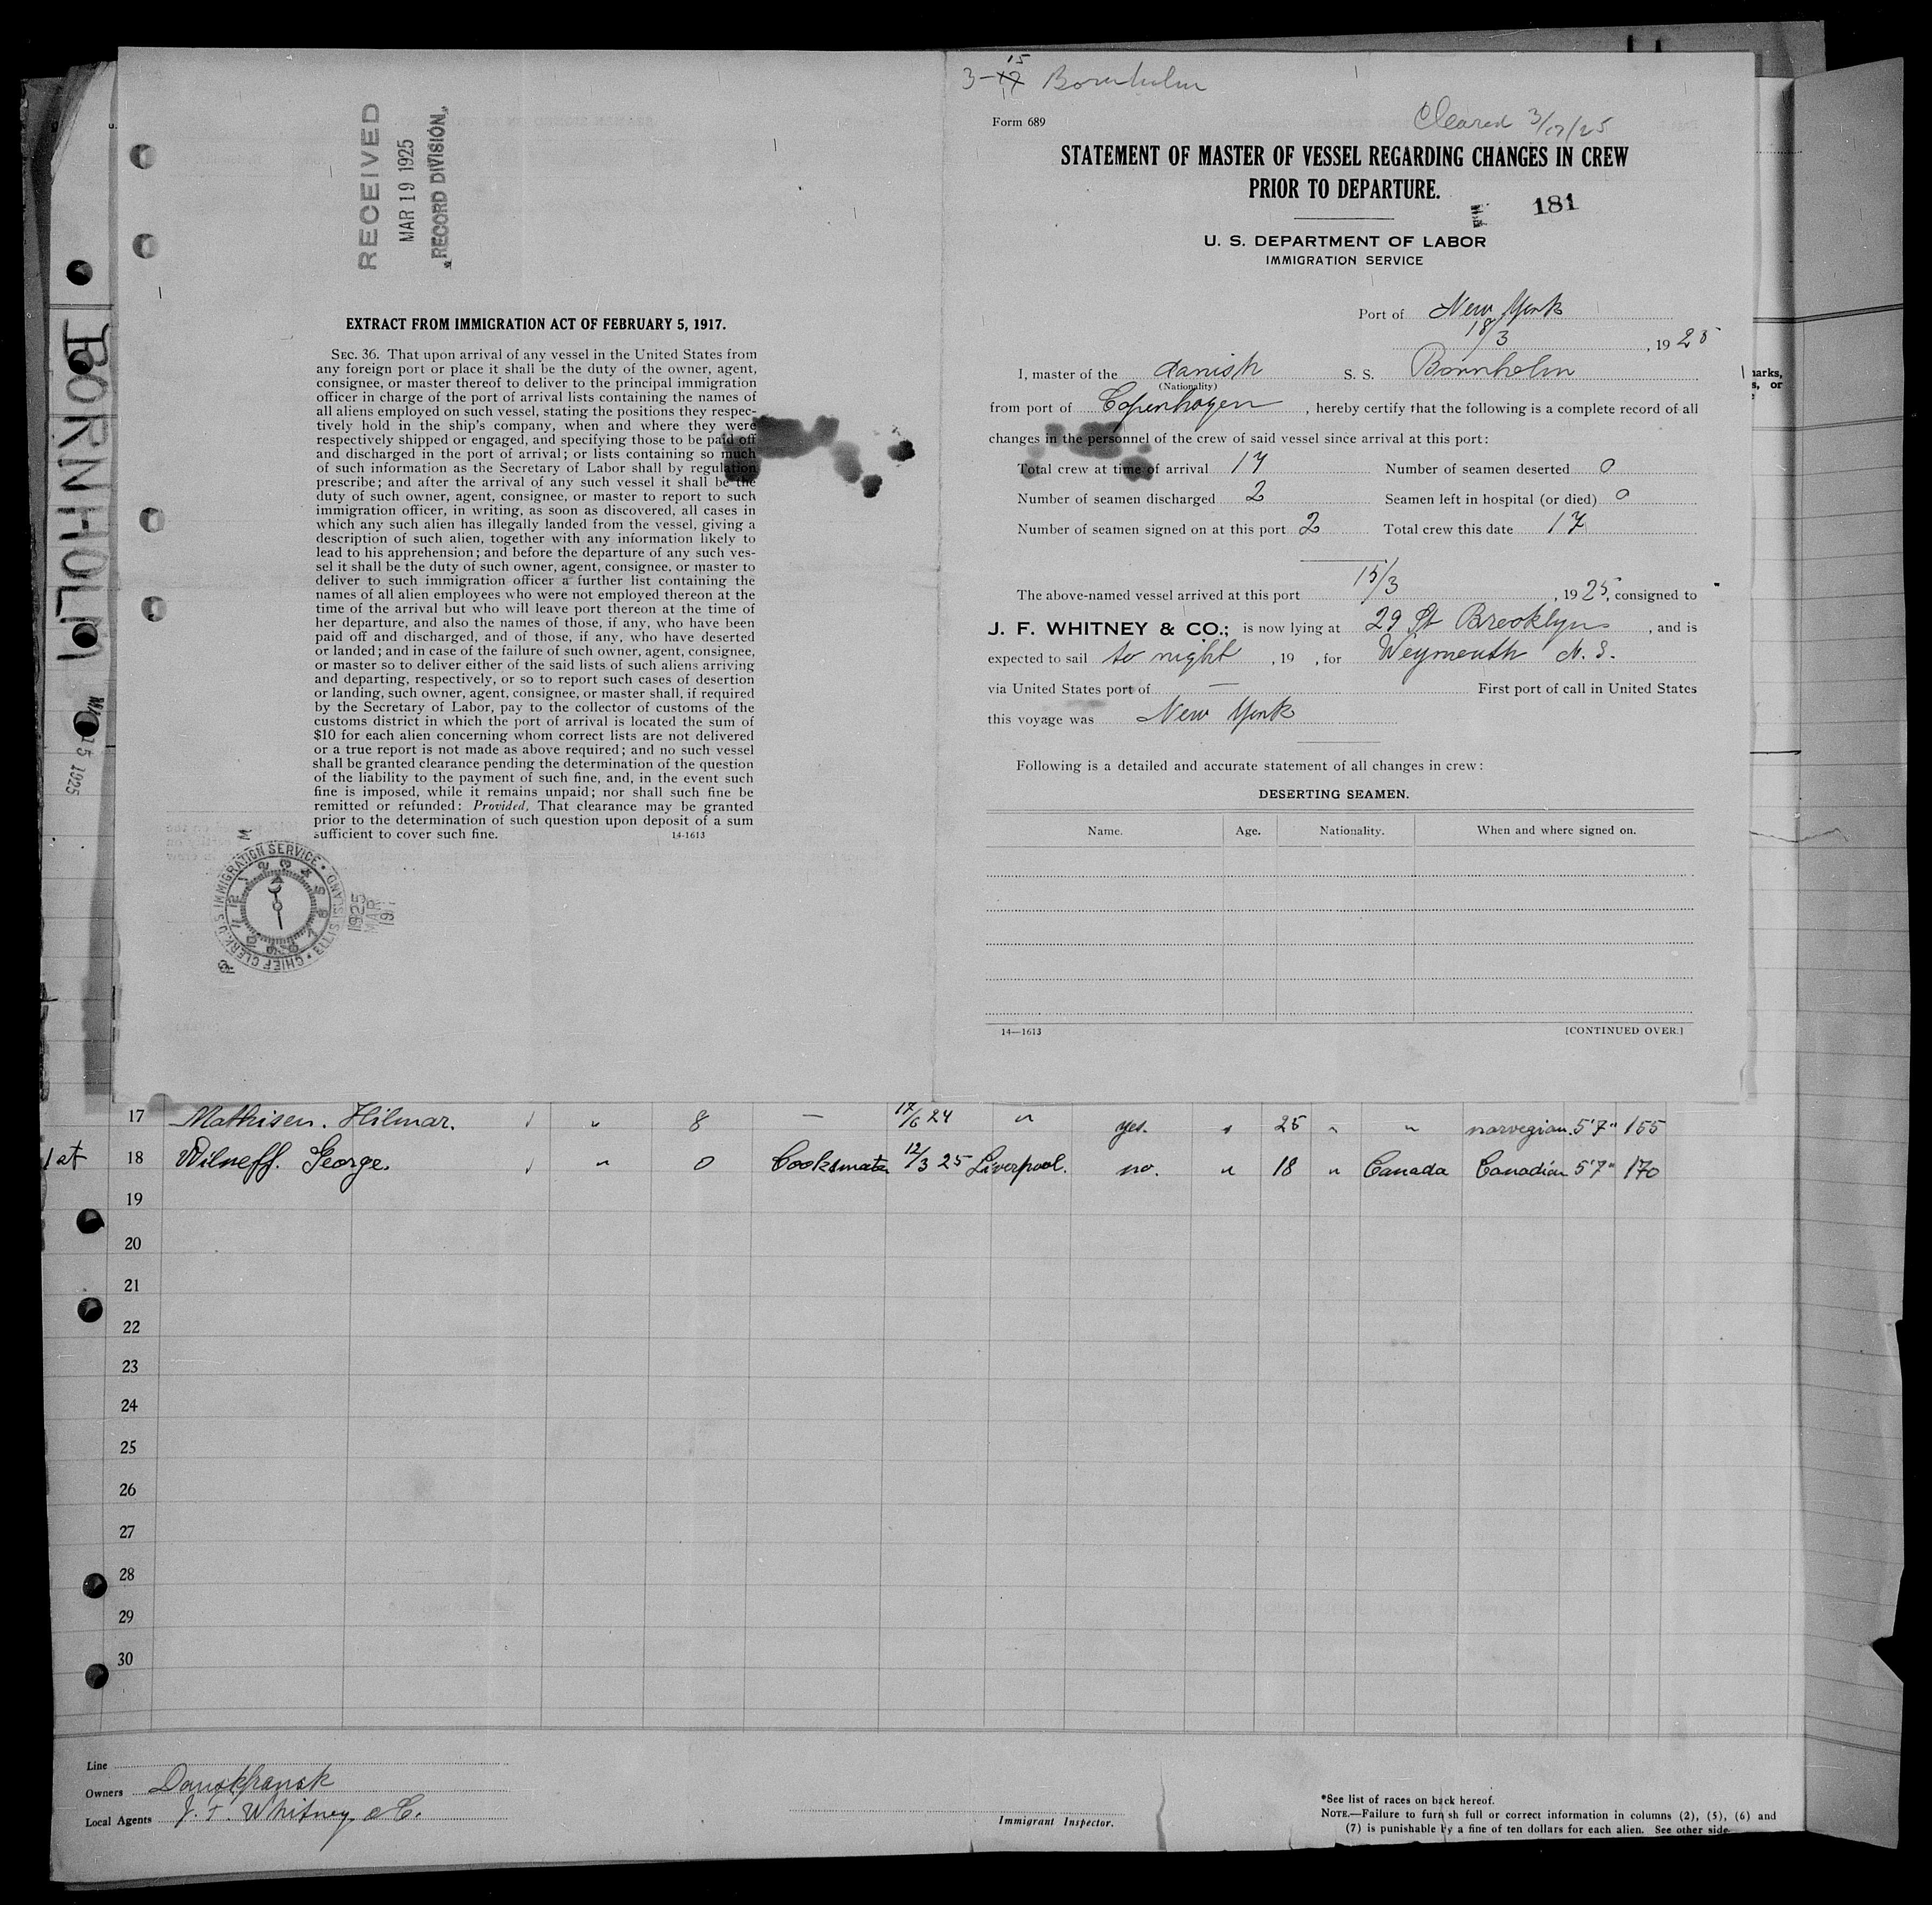 BORNHOLM
MAR 15 1925
RECEIVED
MAR 19 1925
RECORD DIVISION
EXTRACT FROM IMMIGRATION ACT OF FEBRUARY 5, 1917.
SEC. 36. That upon arrival of any vessel in the United States from
any foreign port or place it shall be the duty of the owner, agent,
consignee, or master thereof to deliver to the principal immigration
officer in charge of the port of arrival lists containing the names of
all aliens employed on such vessel, stating the positions they respec-
tively hold in the ship's company, when and where they were
respectively shipped or engaged, and specifying those to be paid off
and discharged in the port of arrival; or lists containing so much
of such information as the Secretary of Labor shall by regulation
prescribe; and after the arrival of any such vessel it shall be the
duty of such owner, agent, consignee, or master to report to such
immigration officer, in writing, as soon as discovered, all cases in
which any such alien has illegally landed from the vessel, giving a
description of such alien, together with any information likely to
lead to his apprehension; and before the departure of any such ves-
sel it shall be the duty of such owner, agent, consignee, or master to
deliver to such immigration officer a further list containing the
names of all alien employees who were not employed thereon at the
time of the arrival but who will leave port thereon at the time of
her departure, and also the names of those, if any, who have been
paid off and discharged, and of those, if any, who have deserted
or landed; and in case of the failure of such owner, agent, consignee,
or master so to deliver either of the said lists of such aliens arriving
and departing, respectively, or so to report such cases of desertion
or landing, such owner, agent, consignee, or master shall, if required
by the Secretary of Labor, pay to the collector of customs of the
customs district in which the port of arrival is located the sum of
$10 for each alien concerning whom correct lists are not delivered
or a true report is not made as above required; and no such vessel
shall be granted clearance pending the determination of the question
of the liability to the payment of such fine, and, in the event such
fine is imposed, while it remains unpaid; nor shall such fine be
remitted or refunded: Provided, That clearance may be granted
prior to the determination of such question upon deposit of a sum
sufficient to cover such fine. 14-1613
CHIEF CLERK, U.S. IMMIGRATION SERVICE · ELLIS ISLAND
1925
MAR
19
3-17 15 Bornholm
Cleared 3/17/25
Form 689
STATEMENT OF MASTER OF VESSEL REGARDING CHANGES IN CREW
PRIOR TO DEPARTURE.
181
U. S. DEPARTMENT OF LABOR
IMMIGRATION SERVICE
Port of New York
18/3, 1925
I, master of the danish S. S. Bornholm
(Nationality)
from port of Copenhagen, hereby certify that the following is a complete record of all
changes in the personnel of the crew of said vessel since arrival at this port:
Total crew at time of arrival 17 Number of seamen deserted 0
Number of seamen discharged 2 Seamen left in hospital (or died) 0
Number of seamen signed on at this port 2 Total crew this date 17
The above-named vessel arrived at this port 15/3, 1925, consigned to
J. F. WHITNEY & CO.; is now lying at 29 St Brooklyn, and is
expected to sail to night, 19 , for Weymouth N. S.
via United States port of — First port of call in United States
this voyage was New York
Following is a detailed and accurate statement of all changes in crew:
DESERTING SEAMEN.
Name. Age. Nationality. When and where signed on.
14—1613 [CONTINUED OVER.]
arks,
s, or
17 Mathisen. Hilmar. " 8 — 17/6 24 " yes. " 25 " " norvegian. 5'7" 155
1 at 18 Wilneff. George. " 0 Cooksmate 12/3 25 Liverpool. no. " 18 " Canada Canadian 5'7" 170
19
20
21
22
23
24
25
26
27
28
29
30
Line
Owners Danskfransk
Local Agents J. F. Whitney & C.
Immigrant Inspector.
*See list of races on back hereof.
NOTE.—Failure to furnish full or correct information in columns (2), (5), (6) and
(7) is punishable by a fine of ten dollars for each alien. See other side.